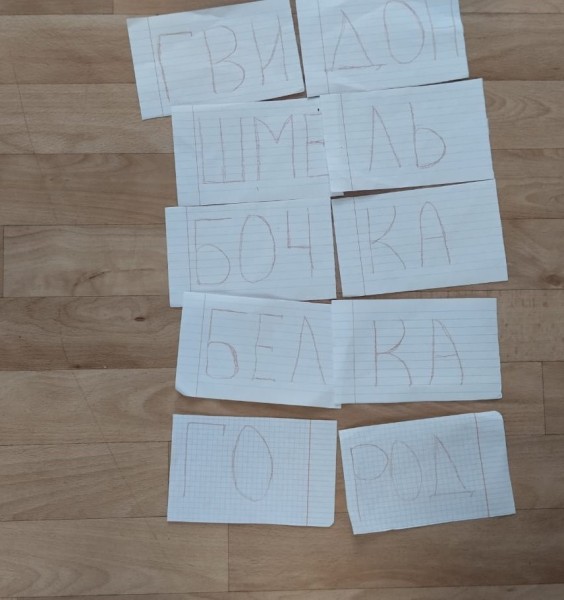 ГВИДОН
ШМЕЛЬ
БОЧКА
БЕЛКА
ГОРОД